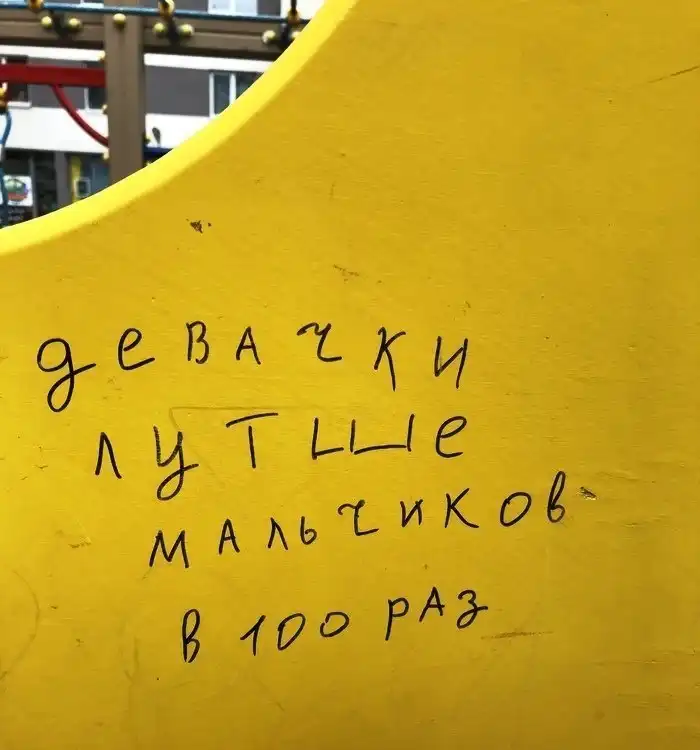 девАчки
лутше
мАльчиков
в 100 рАз